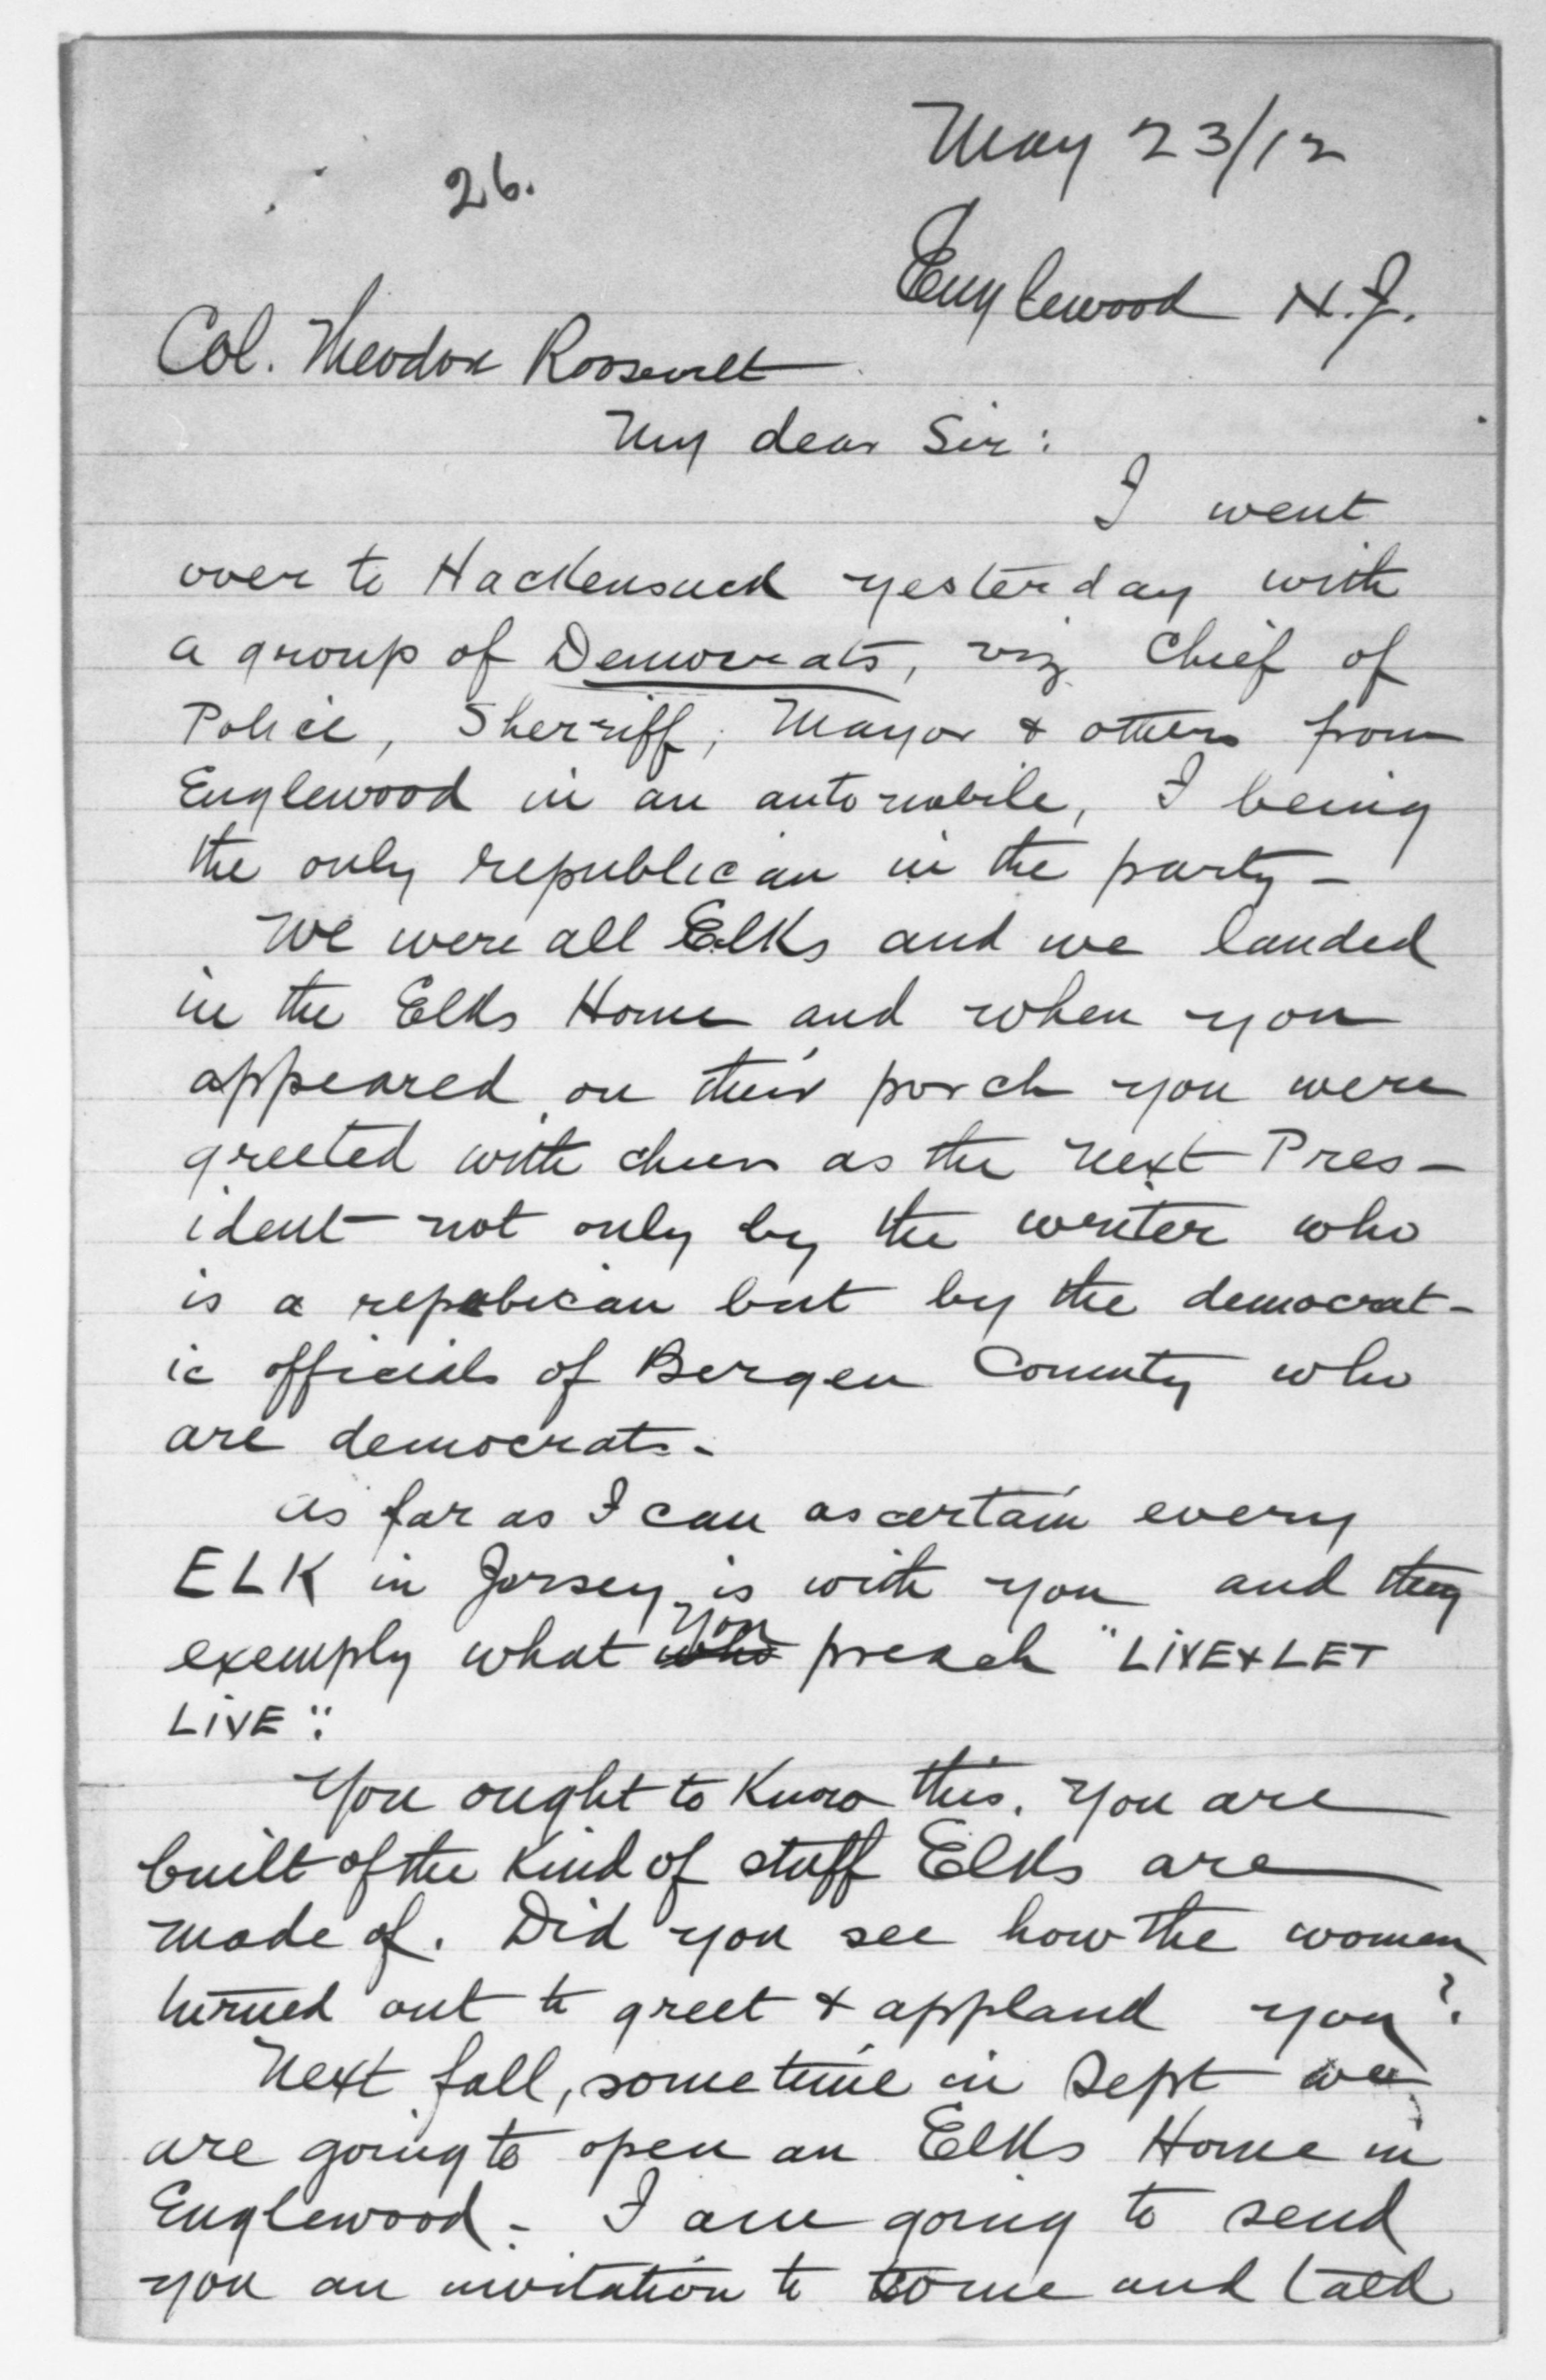 May 23/12
26.
Englewood N.J.
Col. Theodore Roosevelt
My dear Sir:
I went
over to Hackensack yesterday with
a group of Democrats, viz Chief of
Police, Sherriff, Mayor & others from
Englewood in an automobile, I being
the only republican in the party -
We were all Elks and we landed
in the Elks Home and when you
appeared on their porch you were
greeted with cheers as the next Pres-
ident not only by the writer who
is a republican but by the democrat-
ic officials of Bergen County who
are democrats.-
As far as I can ascertain every
ELK in Jersey is with you and they
exemply what who you preach "LiVE & LET
LiVE".
You ought to know this. You are
built of the kind of stuff Elks are
made of. Did you see how the women
turned out to greet & applaud you?
Next fall, sometime in Sept we
are going to open an Elks Home in
Englewood - I am going to send
you an invitation to come and talk